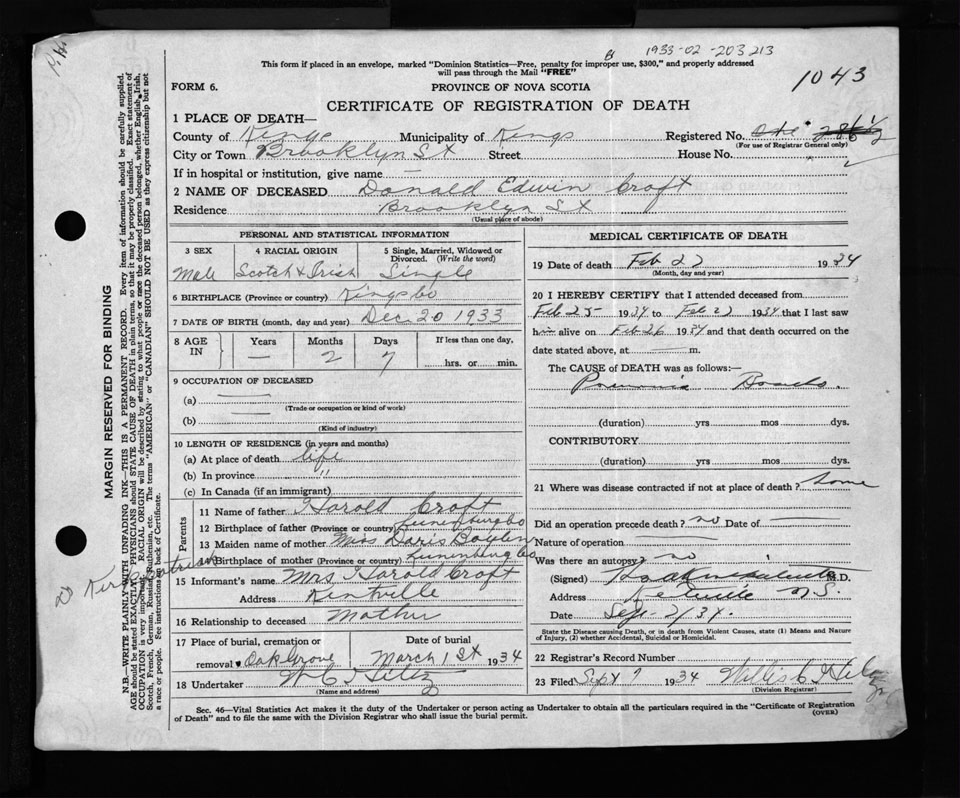 1933-02-203213
This form if placed in an envelope, marked "Dominion Statistics—Free, penalty for improper use, $300," and properly addressed
will pass through the Mail "FREE"
1043
FORM 6.
PROVINCE OF NOVA SCOTIA
CERTIFICATE OF REGISTRATION OF DEATH
1 PLACE OF DEATH—
County of Kings Municipality of Kings Registered No.
(For use of Registrar General only)
City or Town Brooklyn St Street House No.
If in hospital or institution, give name —
2 NAME OF DECEASED Donald Edwin Croft
Residence Brooklyn St
(Usual place of abode)
PERSONAL AND STATISTICAL INFORMATION
3 SEX
Male
4 RACIAL ORIGIN
Scotch & Irish
5 Single, Married, Widowed or Divorced. (Write the word)
Single
6 BIRTHPLACE (Province or country) Kings Co
7 DATE OF BIRTH (month, day and year) Dec 20 1933
8 AGE IN
Years —
Months 2
Days 7
If less than one day,
hrs. or min.
9 OCCUPATION OF DECEASED
(a) —
(Trade or occupation or kind of work)
(b) —
(Kind of industry)
10 LENGTH OF RESIDENCE (in years and months)
(a) At place of death life
(b) In province "
(c) In Canada (if an immigrant)
Parents
11 Name of father Harold Croft
12 Birthplace of father (Province or country) Lunenburg Co
13 Maiden name of mother Miss Doris
14 Birthplace of mother (Province or country) Lunenburg Co
15 Informant's name Mrs Harold Croft
Address Kentville
16 Relationship to deceased Mother
17 Place of burial, cremation or removal Oak Grove
Date of burial
March 1st 1934
18 Undertaker W C Hiltz
(Name and address)
MEDICAL CERTIFICATE OF DEATH
19 Date of death Feb 27 1934
(Month, day and year)
20 I HEREBY CERTIFY that I attended deceased from
Feb 25 1934 to Feb 27 1934 that I last saw
him alive on Feb 26 1934 and that death occurred on
date stated above, at — m.
The CAUSE of DEATH was as follows:—
Pneumonia Broncho.
(duration) yrs mos dys.
CONTRIBUTORY
(duration) yrs mos dys.
21 Where was disease contracted if not at place of death?
Did an operation precede death? no Date of —
Nature of operation —
Was there an autopsy? no
(Signed) M.D.
Address Kentville N.S.
Date Sept 2/34.
State the Disease causing Death, or in death from Violent Causes, state (1) Means and Nature
of Injury, (2) whether Accidental, Suicidal or Homicidal.
22 Registrar's Record Number
23 Filed Sept 7 1934 Willis C Hiltz
(Division Registrar)
Sec. 46—Vital Statistics Act makes it the duty of the Undertaker or person acting as Undertaker to obtain all the particulars required in the "Certificate of Registration
of Death" and to file the same with the Division Registrar who shall issue the burial permit.
(OVER)
MARGIN RESERVED FOR BINDING
N.B.—WRITE PLAINLY WITH UNFADING INK—THIS IS A PERMANENT RECORD. Every item of information should be carefully supplied.
AGE should be stated EXACTLY. PHYSICIANS should STATE CAUSE OF DEATH in plain terms, so that it may be properly classified. Exact statement of
OCCUPATION is very important. RACIAL ORIGIN will be described by stating to what people or race the deceased person belonged, whether English, Irish,
Scotch, French, German, Russian, Ruthenian, etc. The terms "AMERICAN" or "CANADIAN" SHOULD NOT BE USED as they express citizenship but not
a race or people. See instructions on back of Certificate.